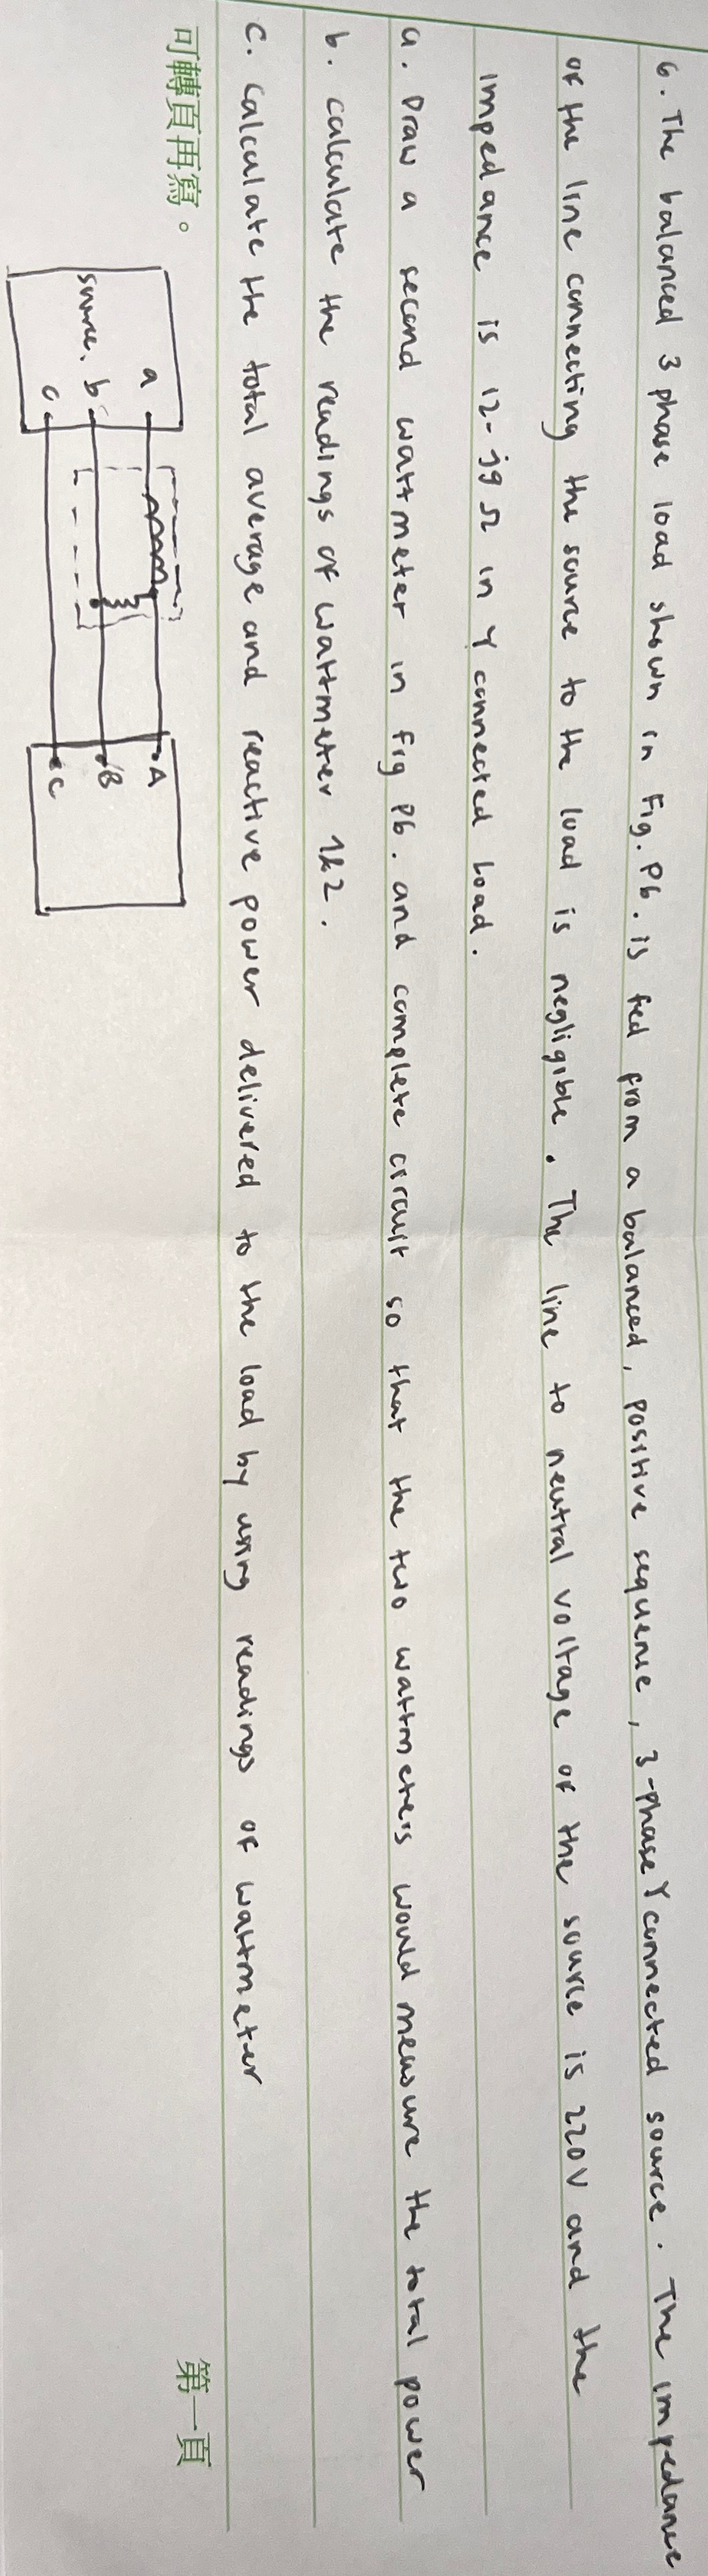 6. The balanced 3 phase load shown in Fig. P6. is fed from a balanced, positive sequence, 3-phase Y connected source. The impedance
of the line connecting the source to the load is negligible. The line to neutral voltage of the source is 220V and the
impedance is 12-j9 Ω in Y connected load.
a. Draw a second wattmeter in fig P6. and complete circuit so that the two wattmeters would measure the total power
b. calculate the readings of wattmeter 1&2.
c. Calculate the total average and reactive power delivered to the load by using readings of wattmeter
可轉頁再寫。
第一頁
a
A
source. b
B
c
C